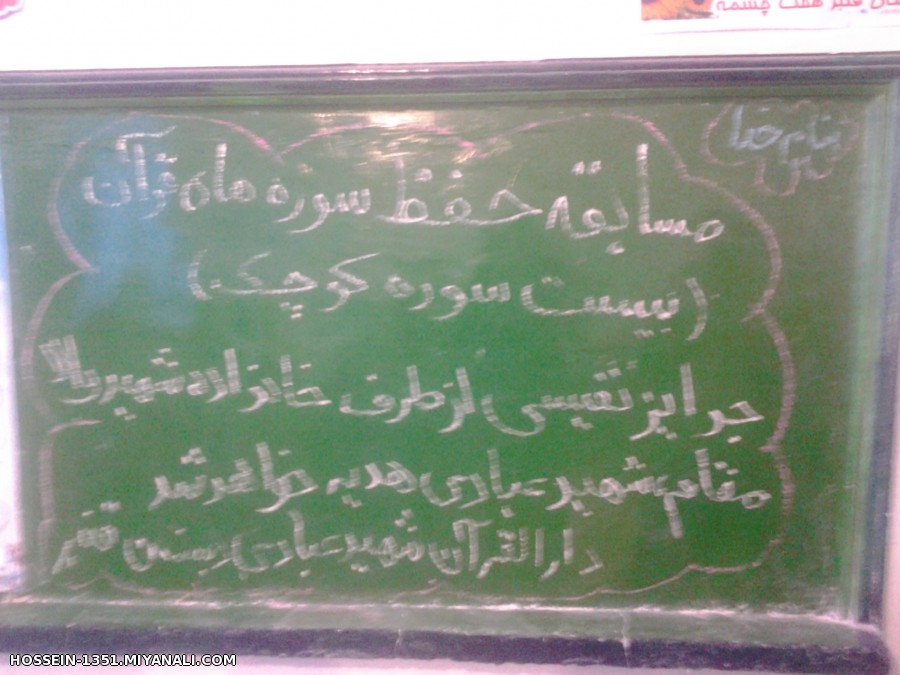 هفت چشمه
بنام خدا
مسابقه حفظ سوره ماه قرآن
(بیست سوره کوچک)
جوایز نفیسی از طرف خانواده شهید والا
مقام شهید عبادی هدیه خواهد شد
دارالقرآن شهید عبادی
HOSSEIN-1351.MIYANALI.COM